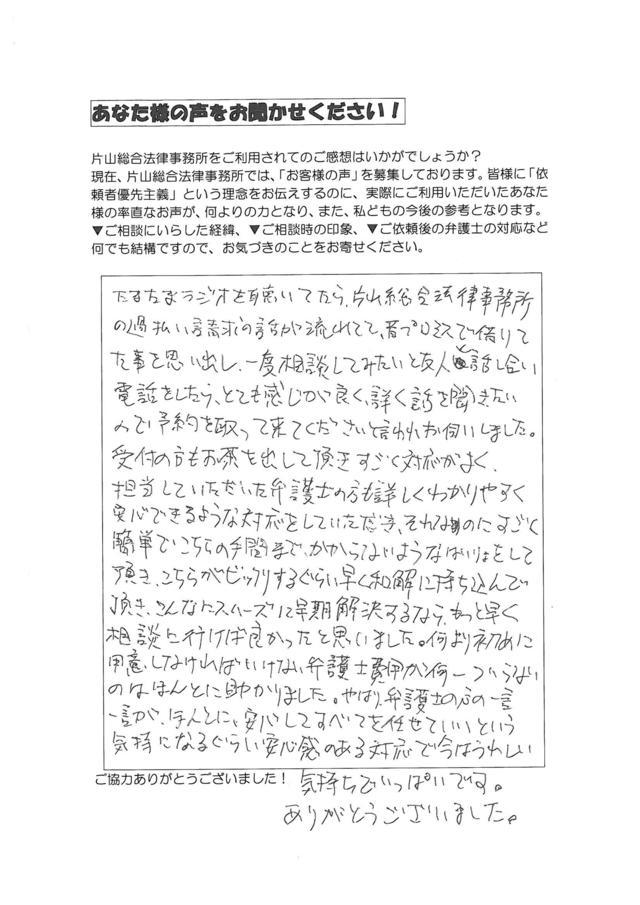 あなた様の声をお聞かせください！
片山総合法律事務所をご利用されてのご感想はいかがでしょうか？
現在、片山総合法律事務所では、「お客様の声」を募集しております。皆様に「依
頼者優先主義」という理念をお伝えするのに、実際にご利用いただいたあなた
様の率直なお声が、何よりの力となり、また、私どもの今後の参考となります。
▼ご相談にいらした経緯、▼ご相談時の印象、▼ご依頼後の弁護士の対応など
何でも結構ですので、お気づきのことをお寄せください。
たまたまラジオを聴いてたら、片山総合法律事務所
の過払い請求の話が流れてて、昔プロミスで借りて
た事を思い出し、一度相談してみたいと友人と話し合い
電話をしたら、とても感じが良く、詳く話を聞きたい
ので予約を取って来てくださいと言われお伺いしました。
受付の方もお茶を出して頂きすごく対応がよく、
担当していただいた弁護士の方も詳しくわかりやすく
安心できるような対応をしていただき、それなのにすごく
簡単でこちらの手間まで、かからないようなはいりょをして
頂き、こちらがビックリするぐらい早く和解に持ち込んで
頂き、こんなにスムーズに早期解決するなら、もっと早く
相談に行けば良かったと思いました。何より初めに
用意しなければいけない弁護士費用が何一ついらない
のはほんとに助かりました。やはり、弁護士の方の一言
一言が、ほんとに、安心してすべてを任せていいという
気持になるぐらい安心感のある対応で今はうれしい
気持ちでいっぱいです。
ご協力ありがとうございました！
ありがとうございました。